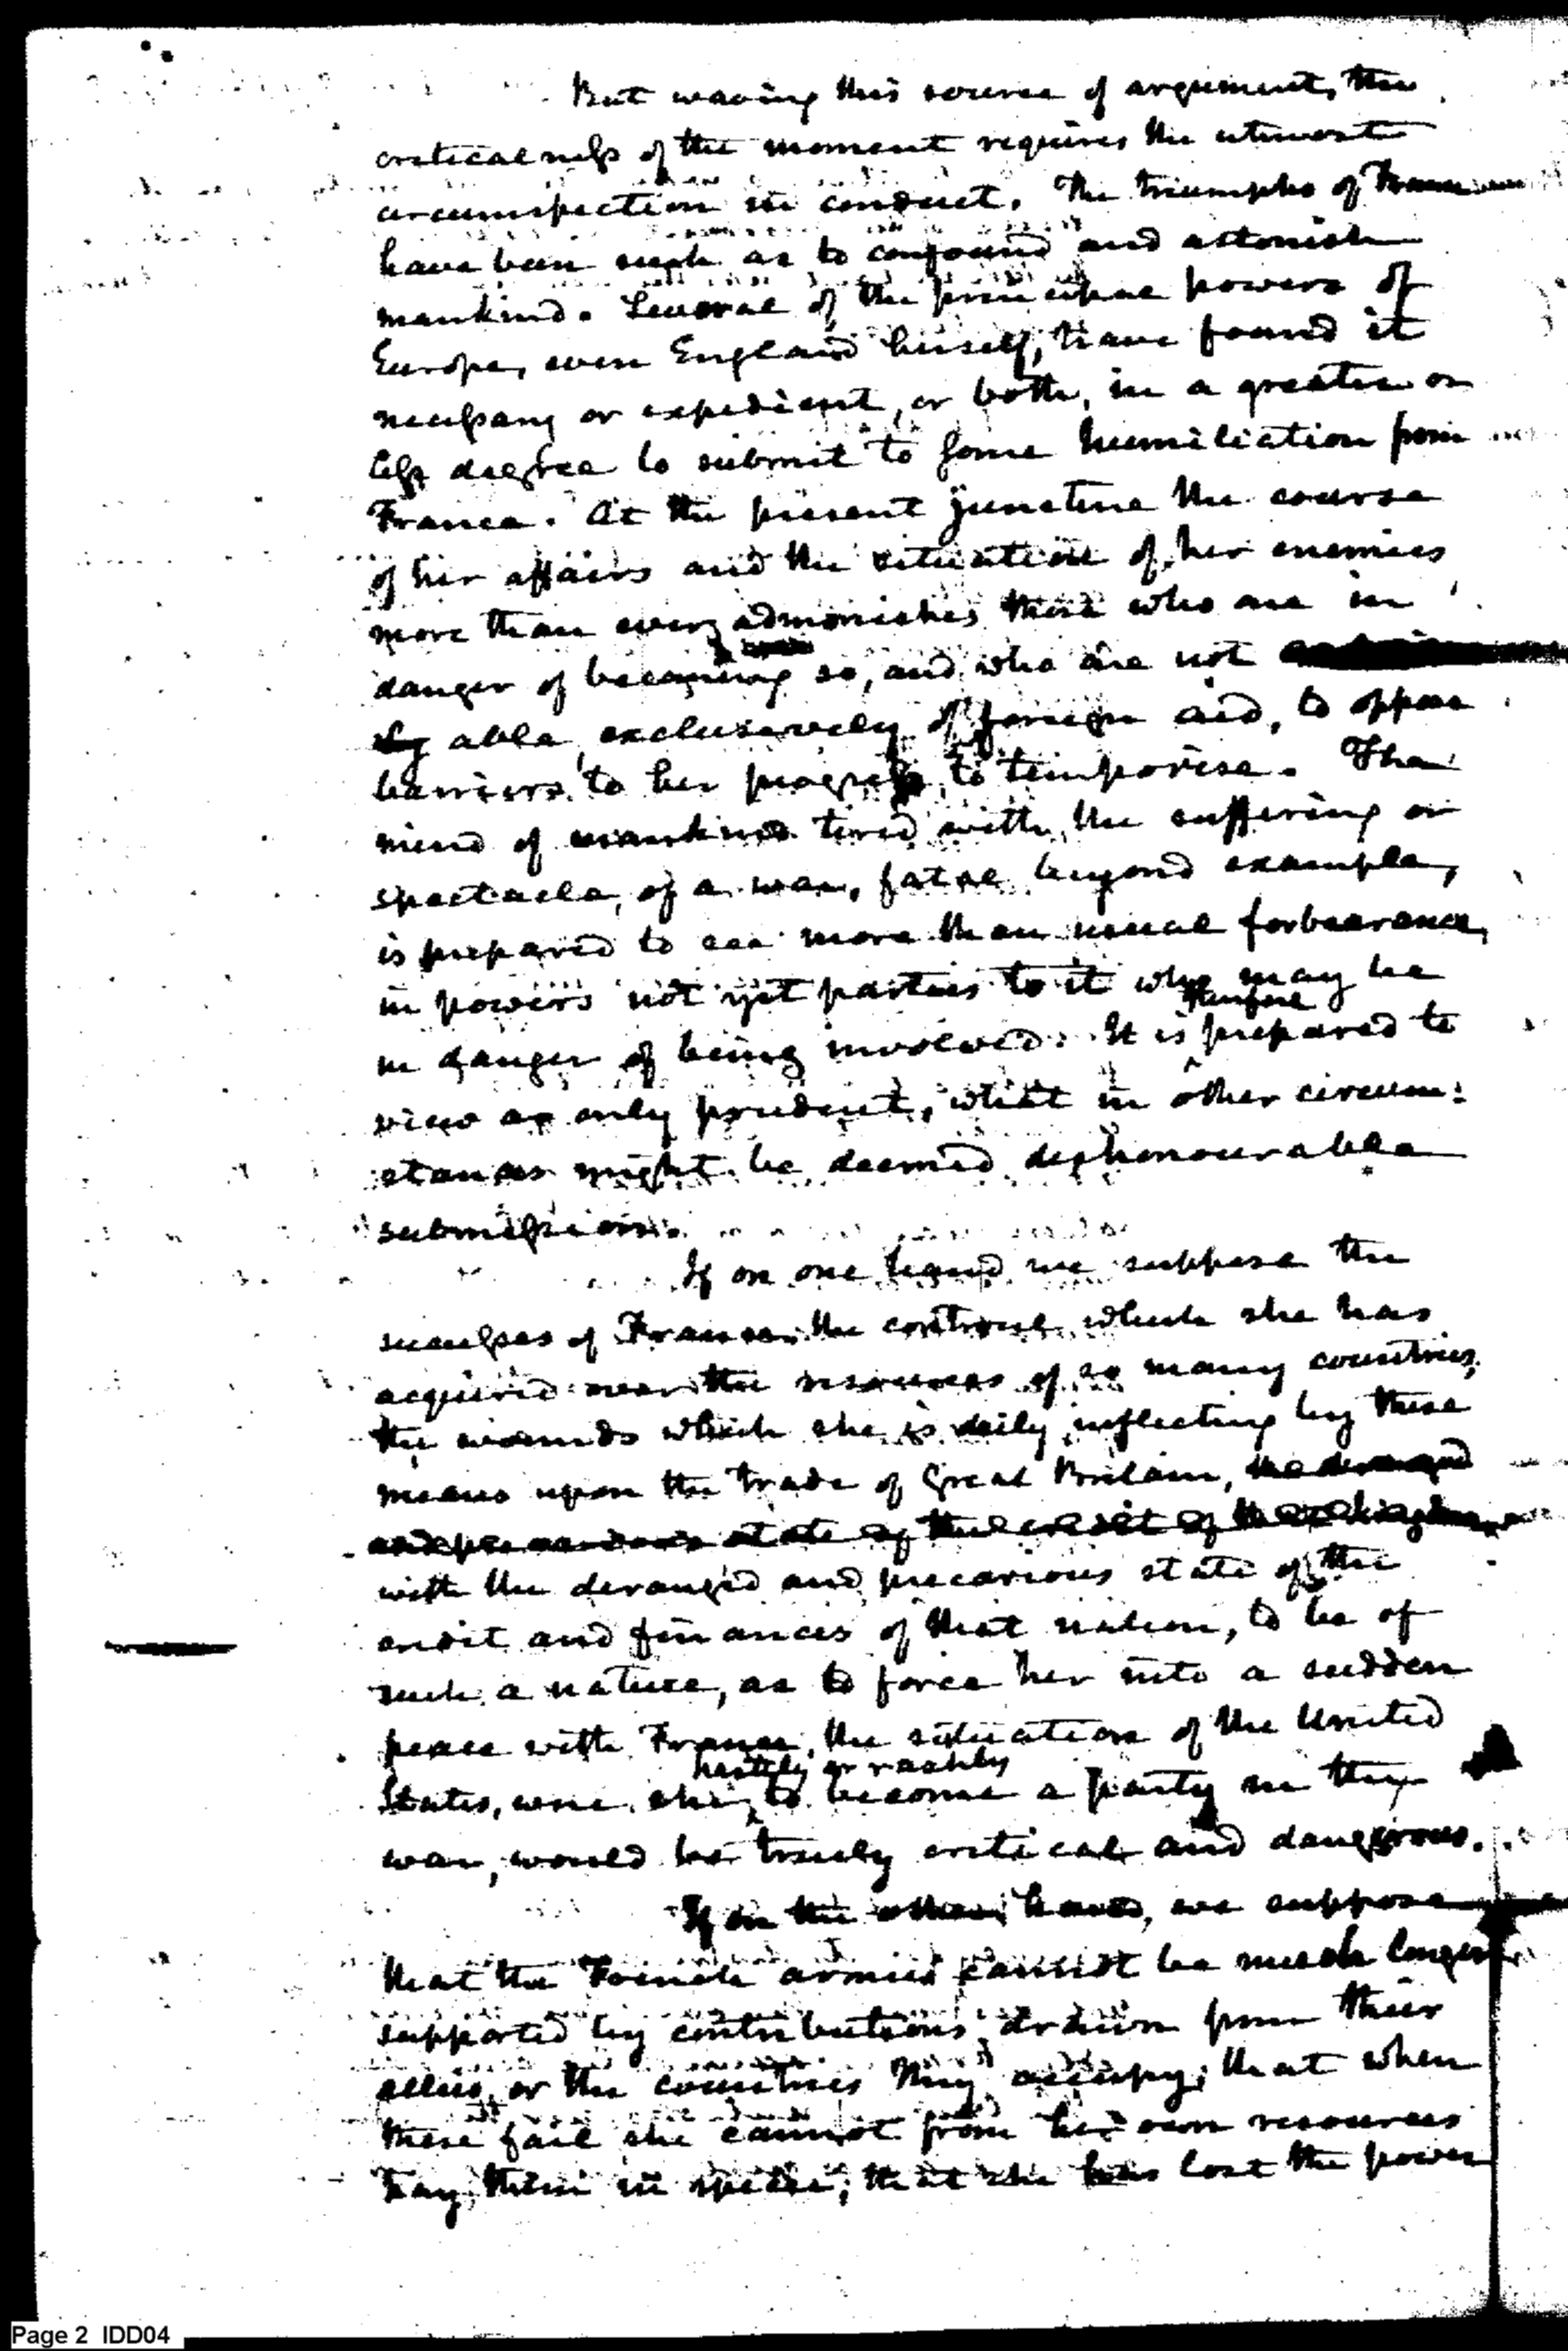 But waving this source of argument, the
criticalness of the moment requires the utmost
circumspection in conduct. The triumphs of France
have been such as to confound and astonish
mankind. Several of the principal powers of
Europe, even England herself, have found it
necessary or expedient, or both, in a greater or
less degree to submit to some humiliation from
France. At the present juncture the course
of her affairs and the situation of her enemies
more than ever admonishes those who are in
danger of becoming so, and who are not
able, exclusively of foreign aid, to oppose
barriers to her progress, to temporise. The
mind of mankind tired with the suffering or
spectacle, of a war, fatal beyond example,
is prepared to see more than usual forbearance,
in powers not yet parties to it who may be
in danger of being involved. It is therefore prepared to
view as only prudent, what in other circum:
stances might be deemed dishonourable
submission.
If on one hand we suppose the
successes of France, the controul which she has
acquired over the resources of so many countries,
the wounds which she is daily inflicting by these
means upon the trade of Great Britain, the deranged
and precarious state of the credit of the kingdom
with the deranged and precarious state of the
credit and finances of that nation, to be of
such a nature, as to force her into a sudden
peace with France, the situation of the United
States, were she hastily or rashly to become a party in the
war, would be truly critical and dangerous.
If on the other hand, we suppose
that the French armies cannot be much longer
supported by contributions drawn from their
allies, or the countries they occupy; that when
these fail she cannot from her own resources
pay them in specie; that she has lost the power
Page 2 IDD04